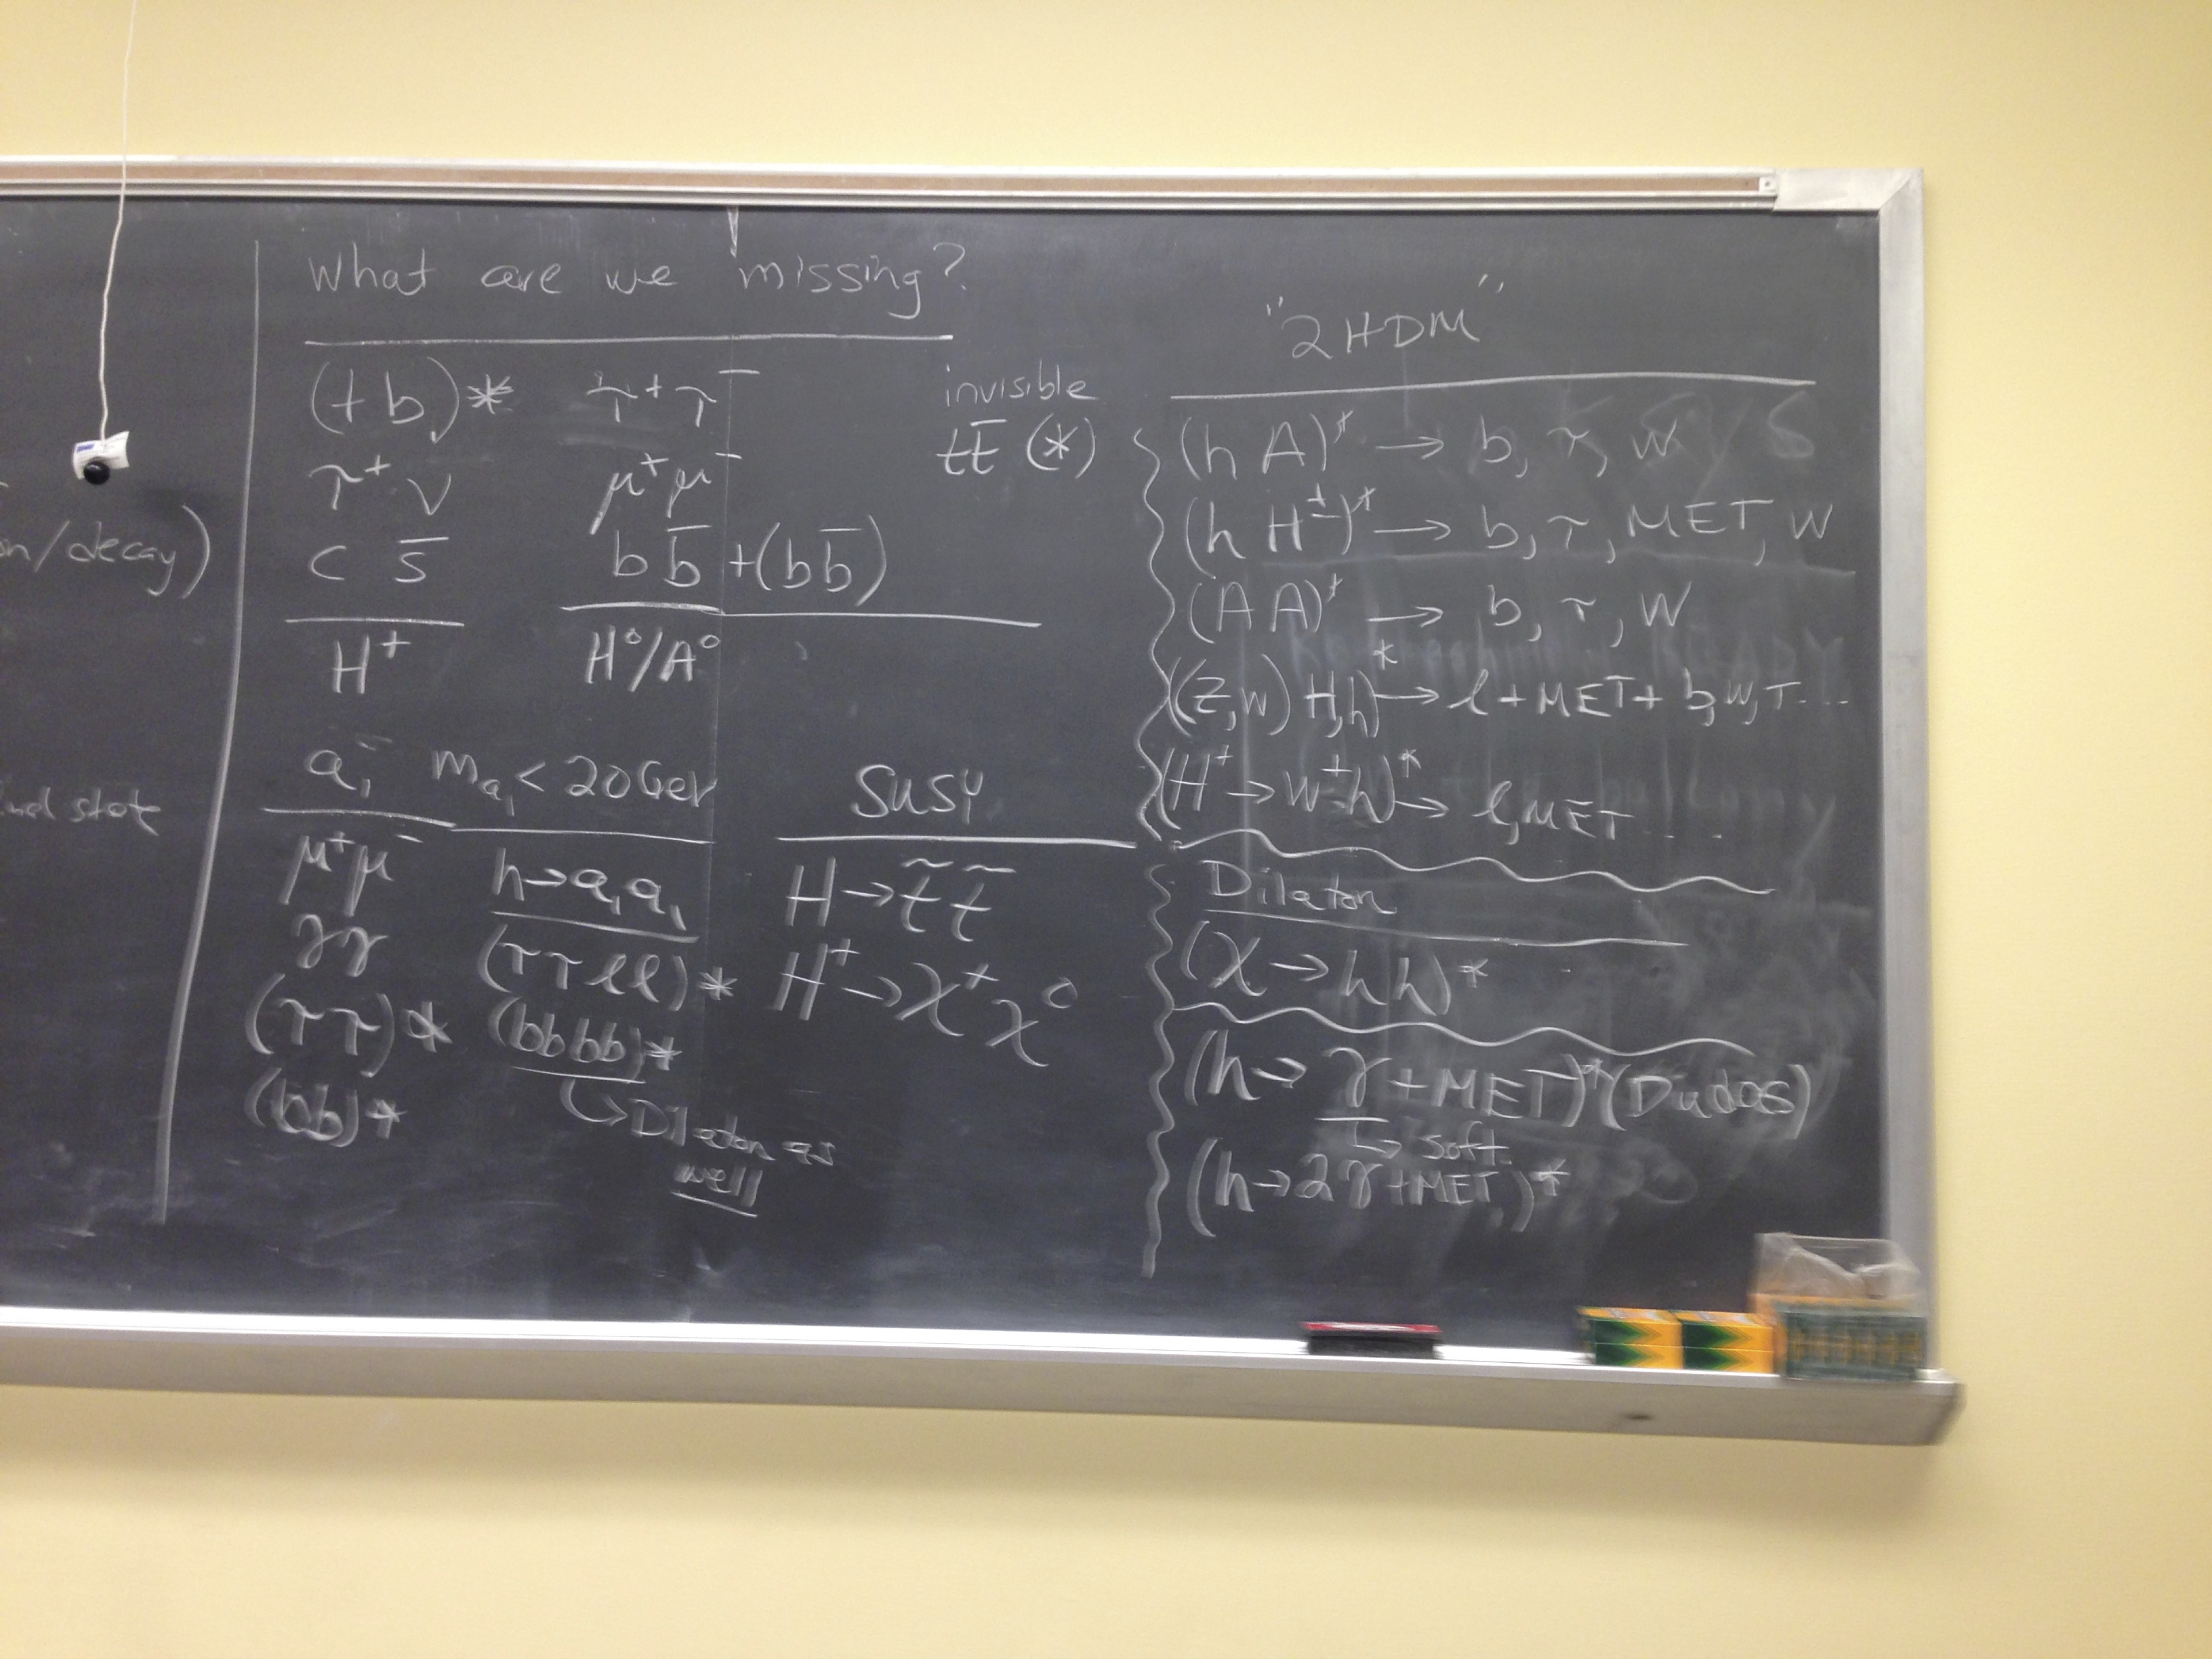 on/decay)
state
What are we missing?
(t b)* τ⁺τ⁻
τ⁺ν μ⁺μ⁻
c s̅ b b̅ + (b b̅)
H⁺ H⁰/A⁰
invisible
t t̅ (*)
a₁ m_a₁ < 20 GeV
μ⁺μ⁻ h→a₁a₁
γγ (ττℓℓ)*
(ττ)* (bbbb)*
(bb)* ↳Dilaton as
well
SUSY
H→t̃ t̃
H⁺→χ⁺χ⁰
"2HDM"
(h A)* → b, τ, W
(h H±)* → b, τ, MET, W
(A A)* → b, τ, W
((Z,W) H,h)* → ℓ+MET+ b,W,τ...
(H⁺→W⁺h)* → ℓ,MET....
Dilaton
(χ→hh)*
(h→ γ+MET)* (Dudas)
↳ soft
(h→2γ+MET)*